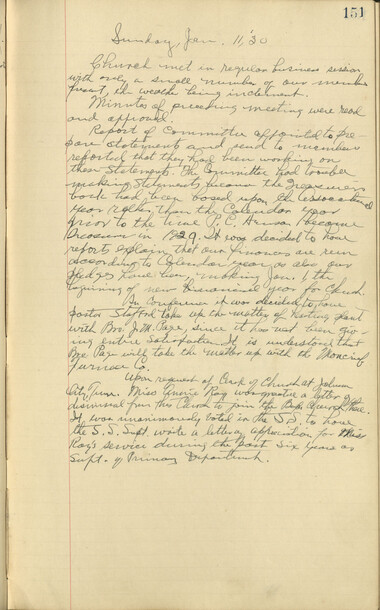 151
Sunday Jan. 11, '30
Church met in regular business session
with only a small number of our members
present, the weather being inclement.
Minutes of preceding meeting were read
and approved.
Report of Committee appointed to pre-
pare statements and send to members
reported that they had been working on
these statements. The Committee had trouble
making statements because the Treasurers
book had been based upon the Associational
year rather than the Calendar year
prior to the time P. C. became
Treasurer in 1929. It was decided to have
reports explain that our finances are run
according to Calendar year as also our
Pledges have been, making Jan. 1 the
beginning of new financial year for Church.
In Conference it was decided to have
pastor Stafford take up the matter of heating plant
with Bro. J. M. Page, since it has not been giv-
ing entire satisfaction. It is understood that
Bro. Page will take the matter up with the Moncrief
Furnace Co.
Upon request of Clerk of Church at Johnson
City, Tenn. Miss Annie Ray was granted a letter of
dismissal from this Church to join the Bapt. Church of that
It was unanimously voted in the S.S. to have
the S.S. Supt. write a letter of appreciation for Miss
Ray's service during the past six years as
Supt. of Primary Department.